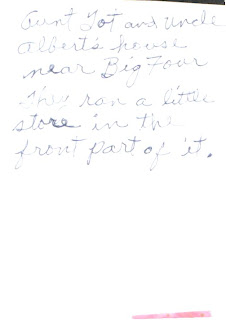 Aunt Tot and Uncle
Albert's house
near Big Four
They ran a little
store in the
front part of it.